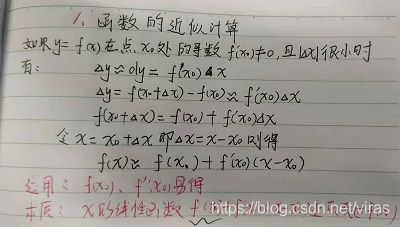 1. 函数的近似计算
如果y=f(x)在点x₀处的导数f'(x₀)≠0,且|Δx|很小时
有:
Δy≈dy=f'(x₀)Δx
Δy=f(x₀+Δx)-f(x₀)≈f'(x₀)Δx
f(x₀+Δx)=f(x₀)+f'(x₀)Δx
令x=x₀+Δx 即Δx=x-x₀则得
f(x)≈f(x₀)+f'(x₀)(x-x₀)
运用:f(x₀)、f'(x₀)易得
本质:x的线性函数
https://blog.csdn.net/viras